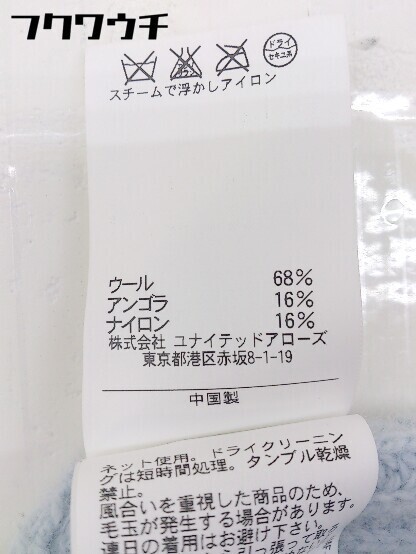 フクワウチ
ドライ
セキユ系
スチームで浮かしアイロン
ウール 68%
アンゴラ 16%
ナイロン 16%
株式会社 ユナイテッドアローズ
東京都港区赤坂8-1-19
中国製
ネット使用。ドライクリーニン
グは短時間処理。タンブル乾燥
禁止。
風合いを重視した商品のため、
毛玉が発生する場合があります。
連日の着用はお避け下さい。